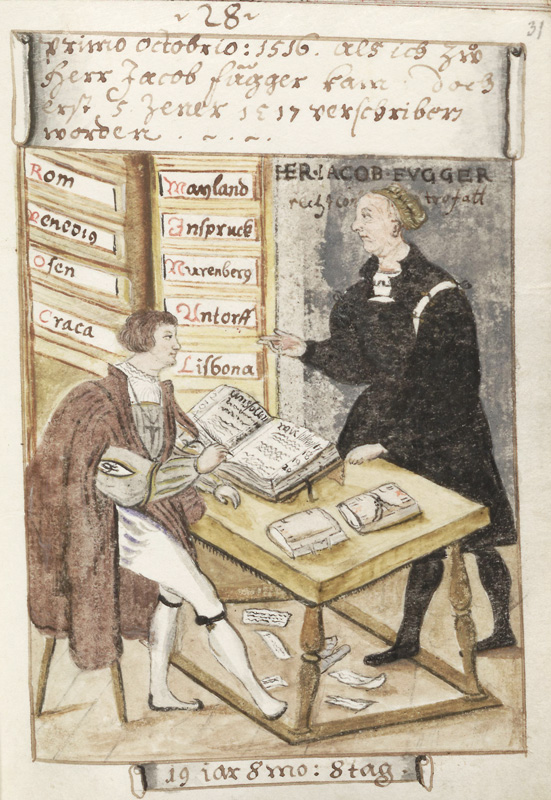 ~28~
31
primo octobrio: 1516. Als ich zů
Herr Jacob függer kam. Doch
erst 5 Jener 1517 verschriben
worden . ~ . ~ .
Rom
Venedig
Ofen
Craca
Mayland
Inspruck
Nurenberg
Antorff
Lisbona
HER·IACOB·FVGGER
19 iar 8 mo: 8 tag.